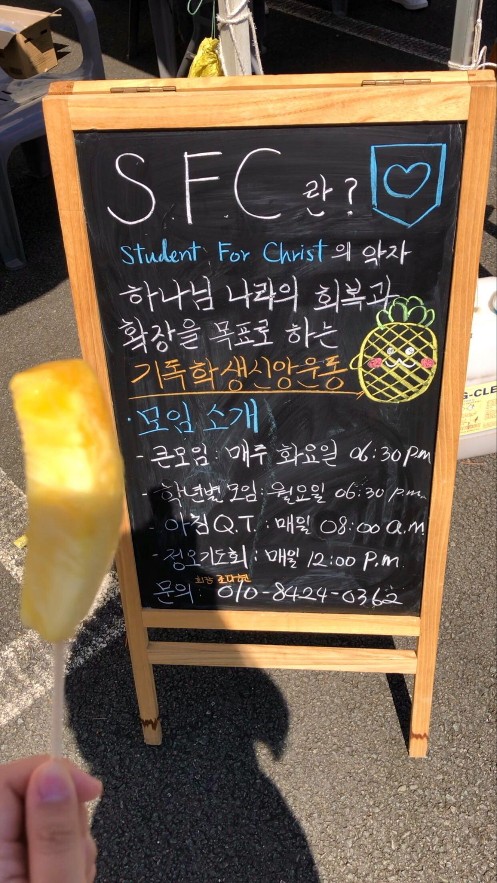 S.F.C 란?
Student For Christ의 약자
하나님 나라의 회복과
확장을 목표로 하는
기독학생신앙운동
·모임 소개
- 큰모임 : 매주 화요일 06:30 p.m
- 학년별 모임 : 월요일 06:30 p.m.
- 아침 Q.T. : 매일 08:00 a.m
- 정오기도회 : 매일 12:00 P.m.
문의 : 010-8424-0362
G-CLE